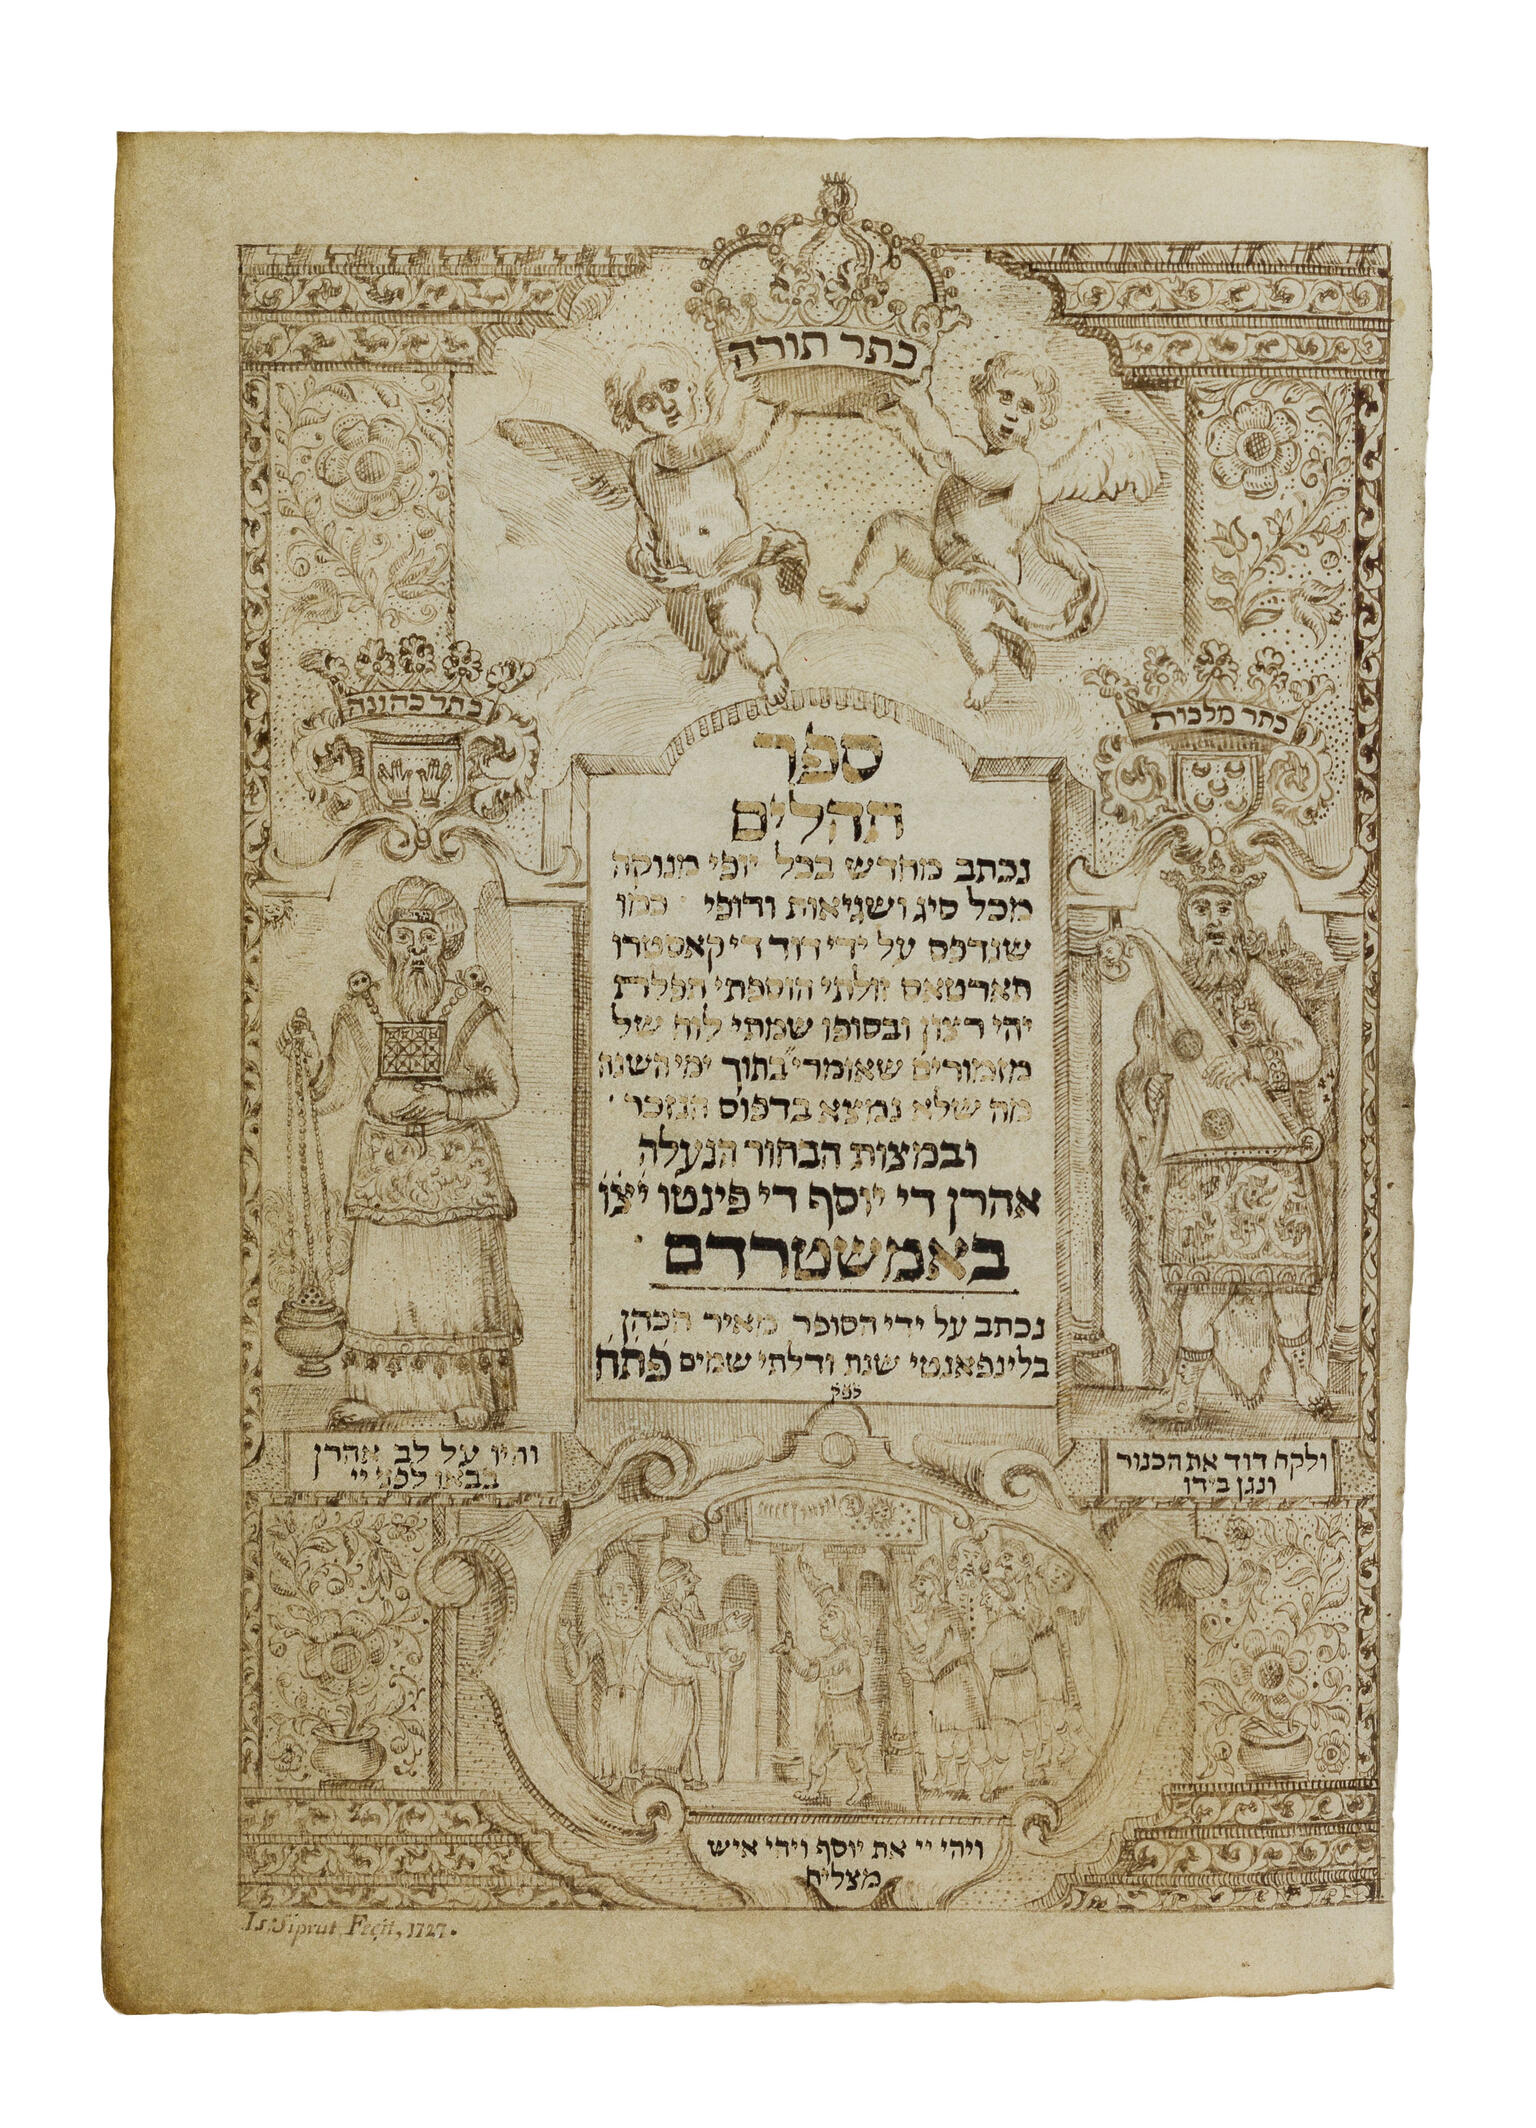 כתר תורה
כתר כהונה
כתר מלכות
ספר
תהלים
נכתב מחדש בכל יופי מנוקה
מכל סיג ושגיאות ודופי כמו
שנדפס על ידי דוד די קאסטרו
תארטאס זולתי הוספתי תפלת
יהי רצון ובסופו שמתי לוח של
מזמורים שאומרי״ בתוך ימי השנה
מה שלא נמצא בדפוס הנזכר
ובמצות הבחור הנעלה
אהרן די יוסף די פינטו יצ״ו
באמשטרדם
נכתב על ידי הסופר מאיר הכהן
בלינפאנטי שנת ודלתי שמים פתח
לפק
והיו על לב אהרן
בבאו לפני יי
ולקח דוד את הכנור
ונגן בידו
ויהי יי את יוסף ויהי איש
מצליח
Is: Siprut Feçit, 1727.